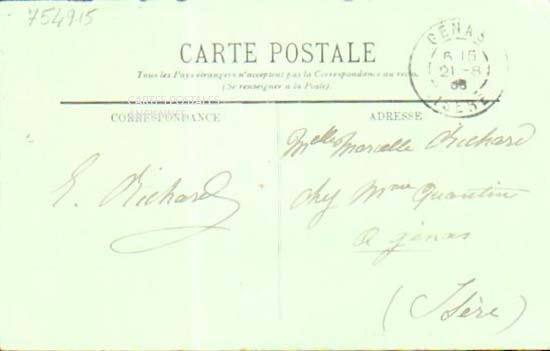 754915
GÉNAS
6 15
21 - 8
ISÈRE
CARTE POSTALE
Tous les Pays étrangers n'acceptent pas la Correspondance au recto
(Se renseigner à la Poste).
CARTE POSTALES
CORRESPONDANCE
ADRESSE
Melle Marcelle Richard
E. Richard
chez Mme Quantin
a génas
(Isère)